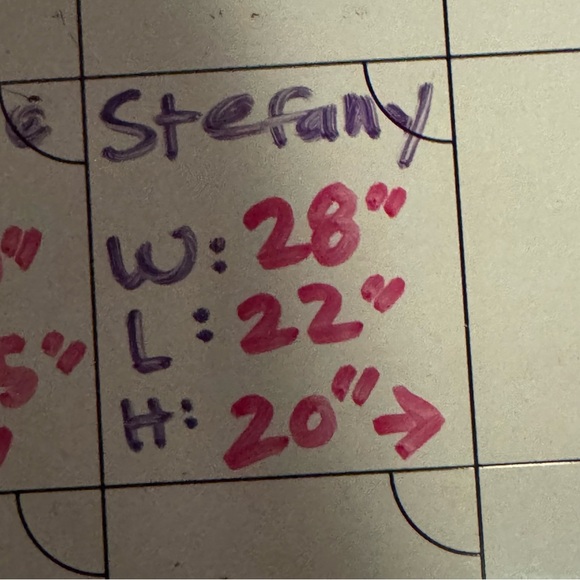 Stefany
W: 28"
L: 22"
H: 20" →